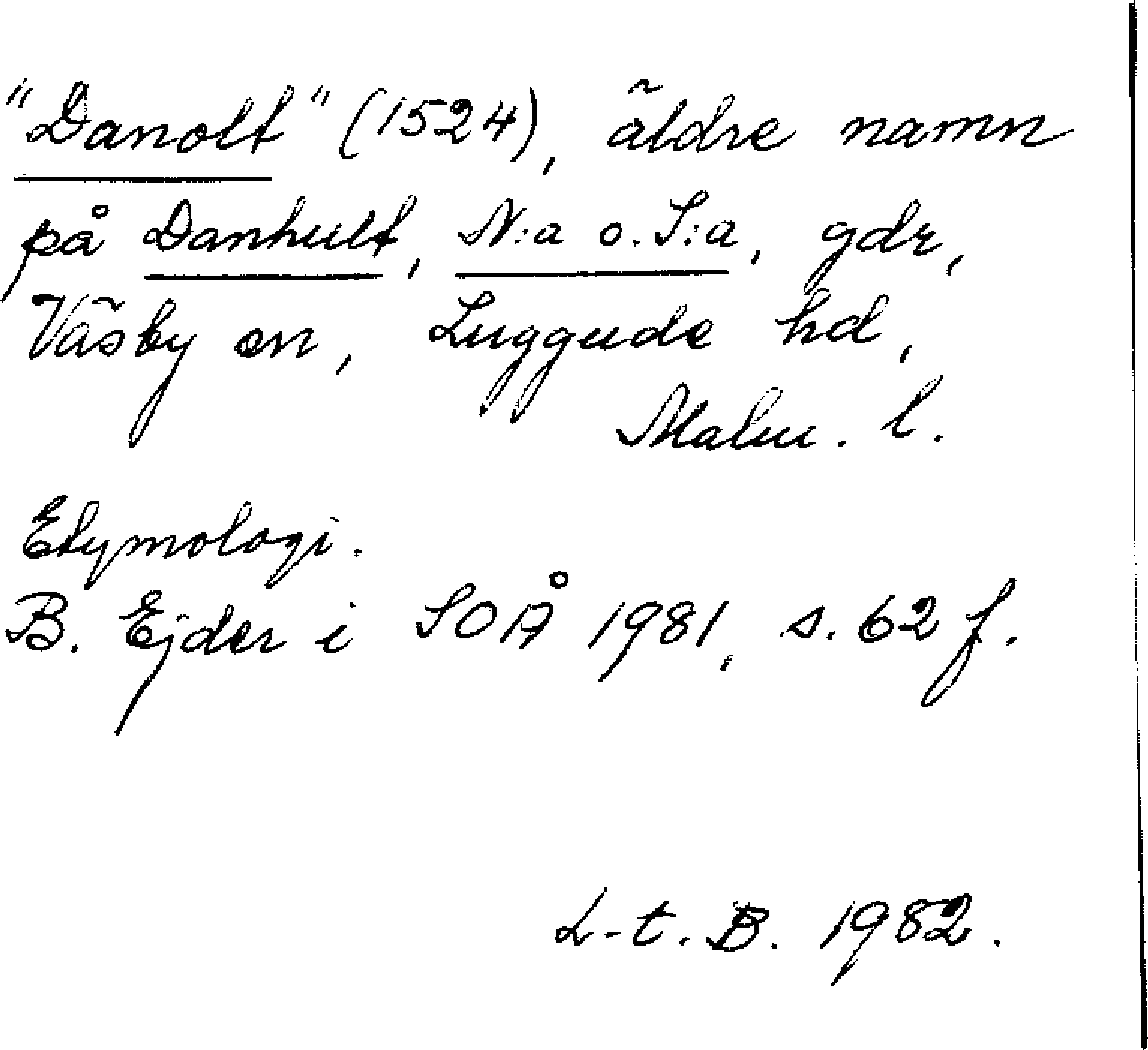 "Danolt" (1524), äldre namn
på Danhult, N:a o. S:a, gdr,
Väsby sn, Luggude hd,
Malm. l.
Etymologi.
B. Ejder i SOÅ 1981, s. 62 f.
L-t. B. 1982.